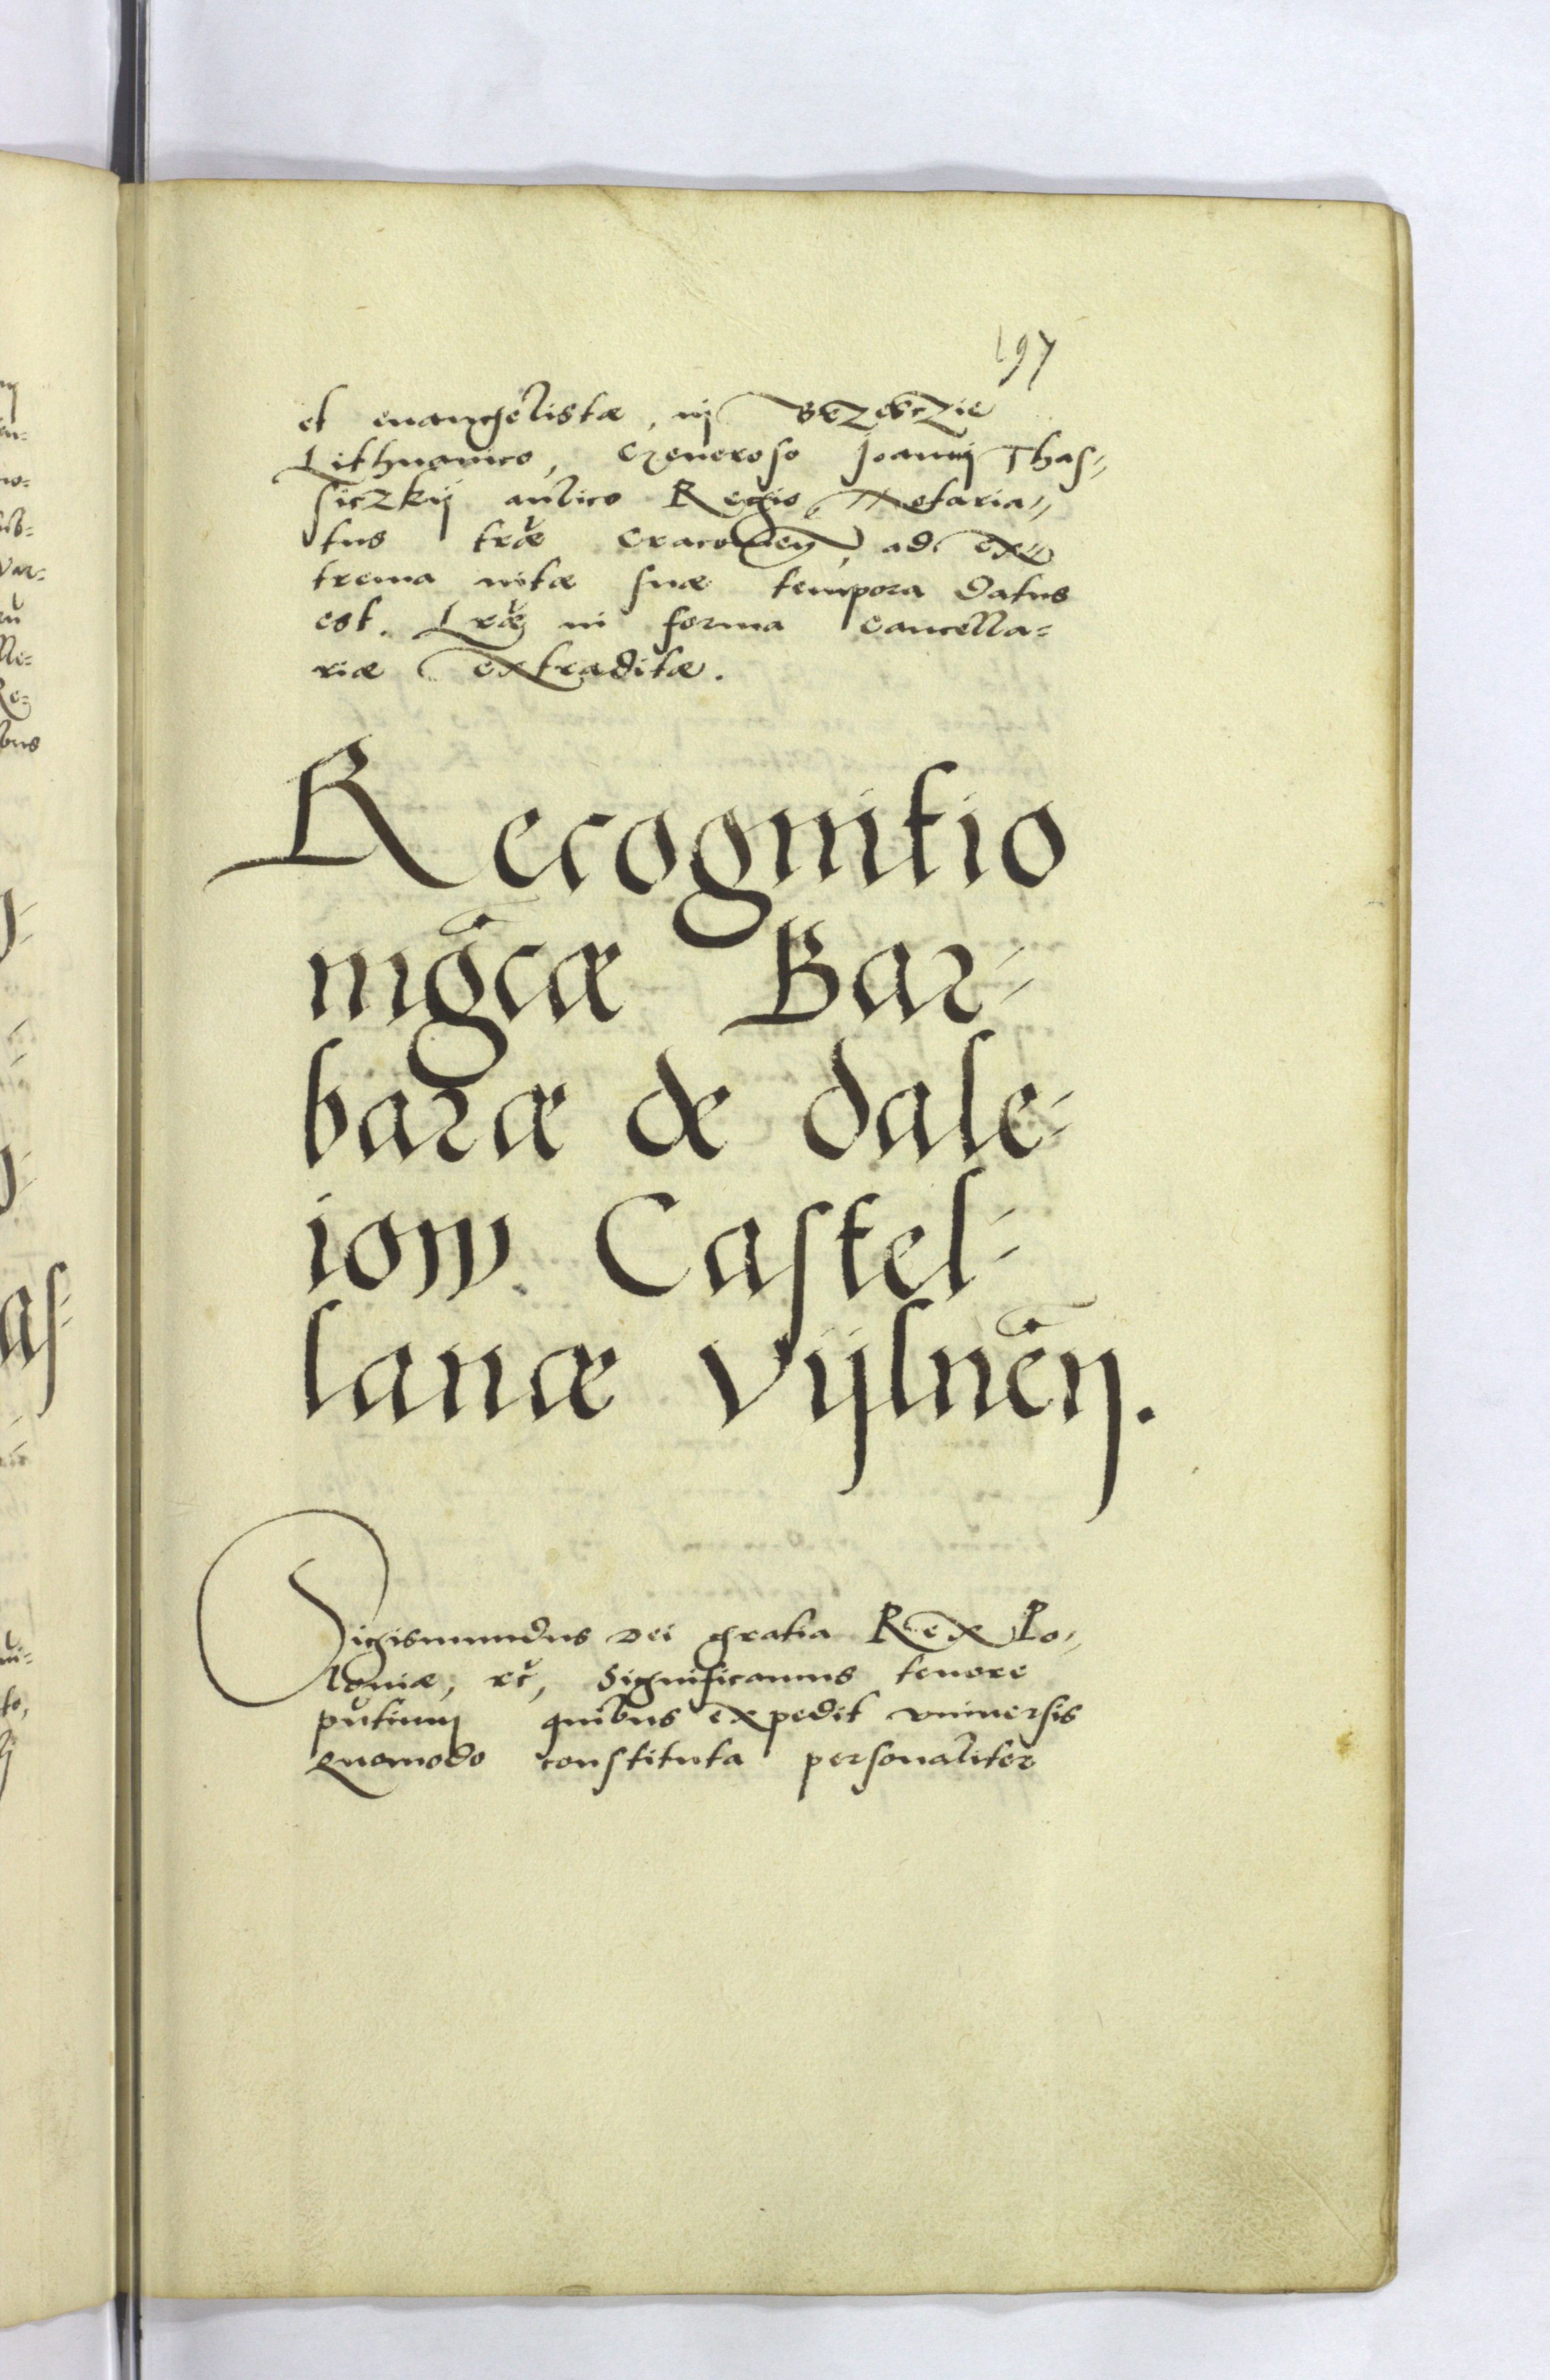 197
et euangelistæ, in Brzesczie
Lithuanico, Generoso Joanni Thas-
siczkij aulico Regio, Notaria-
tus trae Cracovien, ad ex-
trema vitæ suæ tempora datus
est. Lrae in forma Cancella-
riæ extraditæ.
Recognitio
mgcæ Bar-
baræ de dale-
iow Castel-
lanæ Vijlnen.
Sigismundus Dei gratia Rex Po-
loniæ, etc, Significamus tenore
pntium quibus expedit vniuersis
Quomodo constituta personaliter